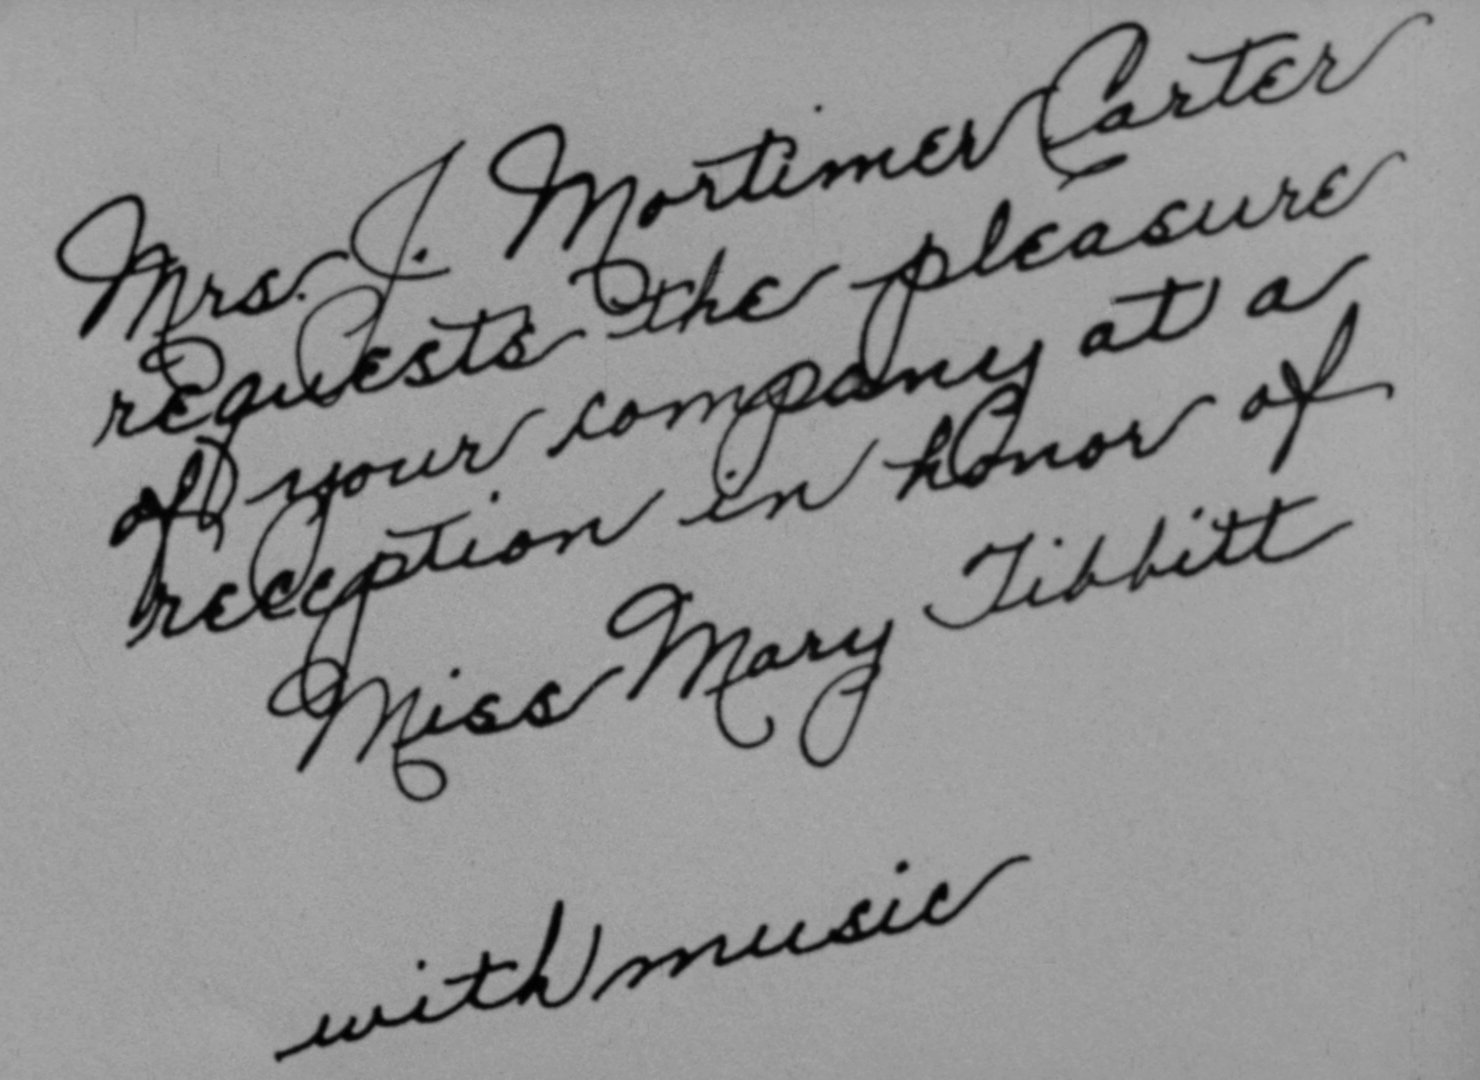 Mrs. J. Mortimer Carter
requests the pleasure
of your company at a
reception in honor of
Miss Mary Tibbitt
with music